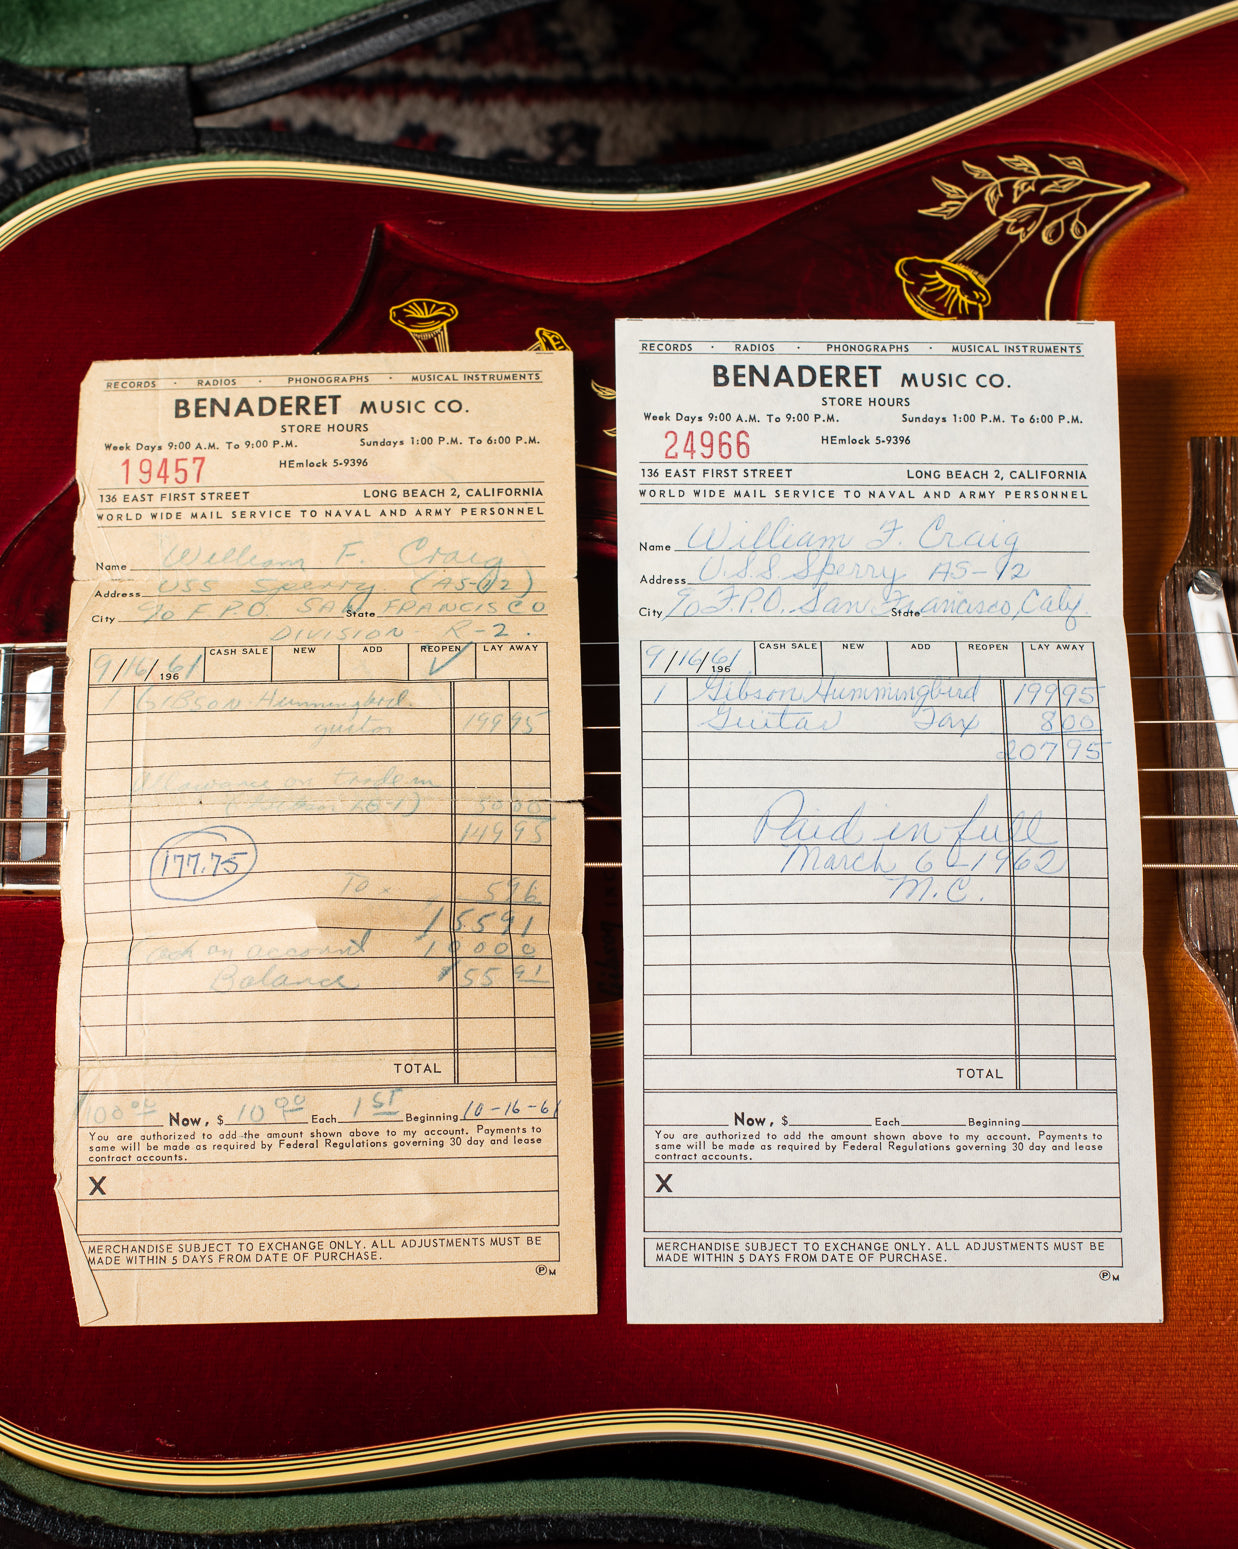 RECORDS · RADIOS · PHONOGRAPHS · MUSICAL INSTRUMENTS
BENADERET MUSIC CO.
STORE HOURS
Week Days 9:00 A.M. To 9:00 P.M. Sundays 1:00 P.M. To 6:00 P.M.
19457 HEmlock 5-9396
136 EAST FIRST STREET LONG BEACH 2, CALIFORNIA
WORLD WIDE MAIL SERVICE TO NAVAL AND ARMY PERSONNEL
Name William F. Craig
Address USS Sperry (AS-12)
City c/o F.P.O. SAN State FRANCISCO
DIVISION R-2.
9/16/61 196 CASH SALE NEW ADD REOPEN ✓ LAY AWAY
1 GIBSON Hummingbird
guitar 199 95
Allowance on trade in
50 00
149 95
177.75
Tax 5 96
155 91
Cash on account 100 00
Balance $55 91
TOTAL
100 00 Now, $ 10 00 Each 1ST Beginning 10-16-61
You are authorized to add the amount shown above to my account. Payments to
same will be made as required by Federal Regulations governing 30 day and lease
contract accounts.
X
MERCHANDISE SUBJECT TO EXCHANGE ONLY. ALL ADJUSTMENTS MUST BE
MADE WITHIN 5 DAYS FROM DATE OF PURCHASE.
Ⓟ M
RECORDS · RADIOS · PHONOGRAPHS · MUSICAL INSTRUMENTS
BENADERET MUSIC CO.
STORE HOURS
Week Days 9:00 A.M. To 9:00 P.M. Sundays 1:00 P.M. To 6:00 P.M.
24966 HEmlock 5-9396
136 EAST FIRST STREET LONG BEACH 2, CALIFORNIA
WORLD WIDE MAIL SERVICE TO NAVAL AND ARMY PERSONNEL
Name William F. Craig
Address U.S.S Sperry AS-12
City c/o F.P.O. San Francisco, Calif. State
9/16/61 196 CASH SALE NEW ADD REOPEN LAY AWAY
1 Gibson Hummingbird 199 95
Guitar Tax 8 00
207 95
Paid in full
March 6-1962
M.C.
TOTAL
Now, $ Each Beginning
You are authorized to add the amount shown above to my account. Payments to
same will be made as required by Federal Regulations governing 30 day and lease
contract accounts.
X
MERCHANDISE SUBJECT TO EXCHANGE ONLY. ALL ADJUSTMENTS MUST BE
MADE WITHIN 5 DAYS FROM DATE OF PURCHASE.
Ⓟ M